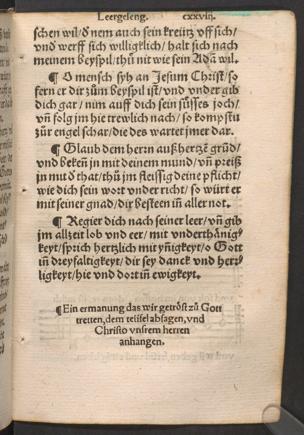 Leergeseng. cxxviij.
schen wil/ dẽnem auch sein kreütz vff sich/
vnd werff sich willigklich/ halt sich nach
meinem beyspil/ thů nit wie sein Adã wil.
¶ O mensch syh an Jesum Christ/ so
fern er dir zům beyspil ist/ vnd vnder gib
dich gar/ nim auff dich sein süsses joch/
vñ folg jm hie trewlich nach/ so kompstu
zůr engel schar/ die des wartet jmer dar.
¶ Glaub dem herrn auß hertzẽ grũd/
vnd bekeñ jn mit deinem mund/ vñ preiß
jn mit d that/ thů jm fleissig deine pflicht/
wie dich sein wort vnder richt/ so würt er
mit seiner gnad/ dir besteen iñ aller not.
¶ Regier dich nach seiner leer/ vñ gib
jm allzeit lob vnd eer/ mit vnderthänig/
keyt/ sprich hertzlich mit ynigkeyt/ o Gott
iñ dreyfaltigkeyt/ dir sey danck vnd herr/
ligkeyt/ hie vnd dort iñ ewigkeyt.
¶ Ein ermanung das wir getröst zů Gott
tretten, dem teüfel absagen, vnd
Christo vnsrem herren
anhangen.